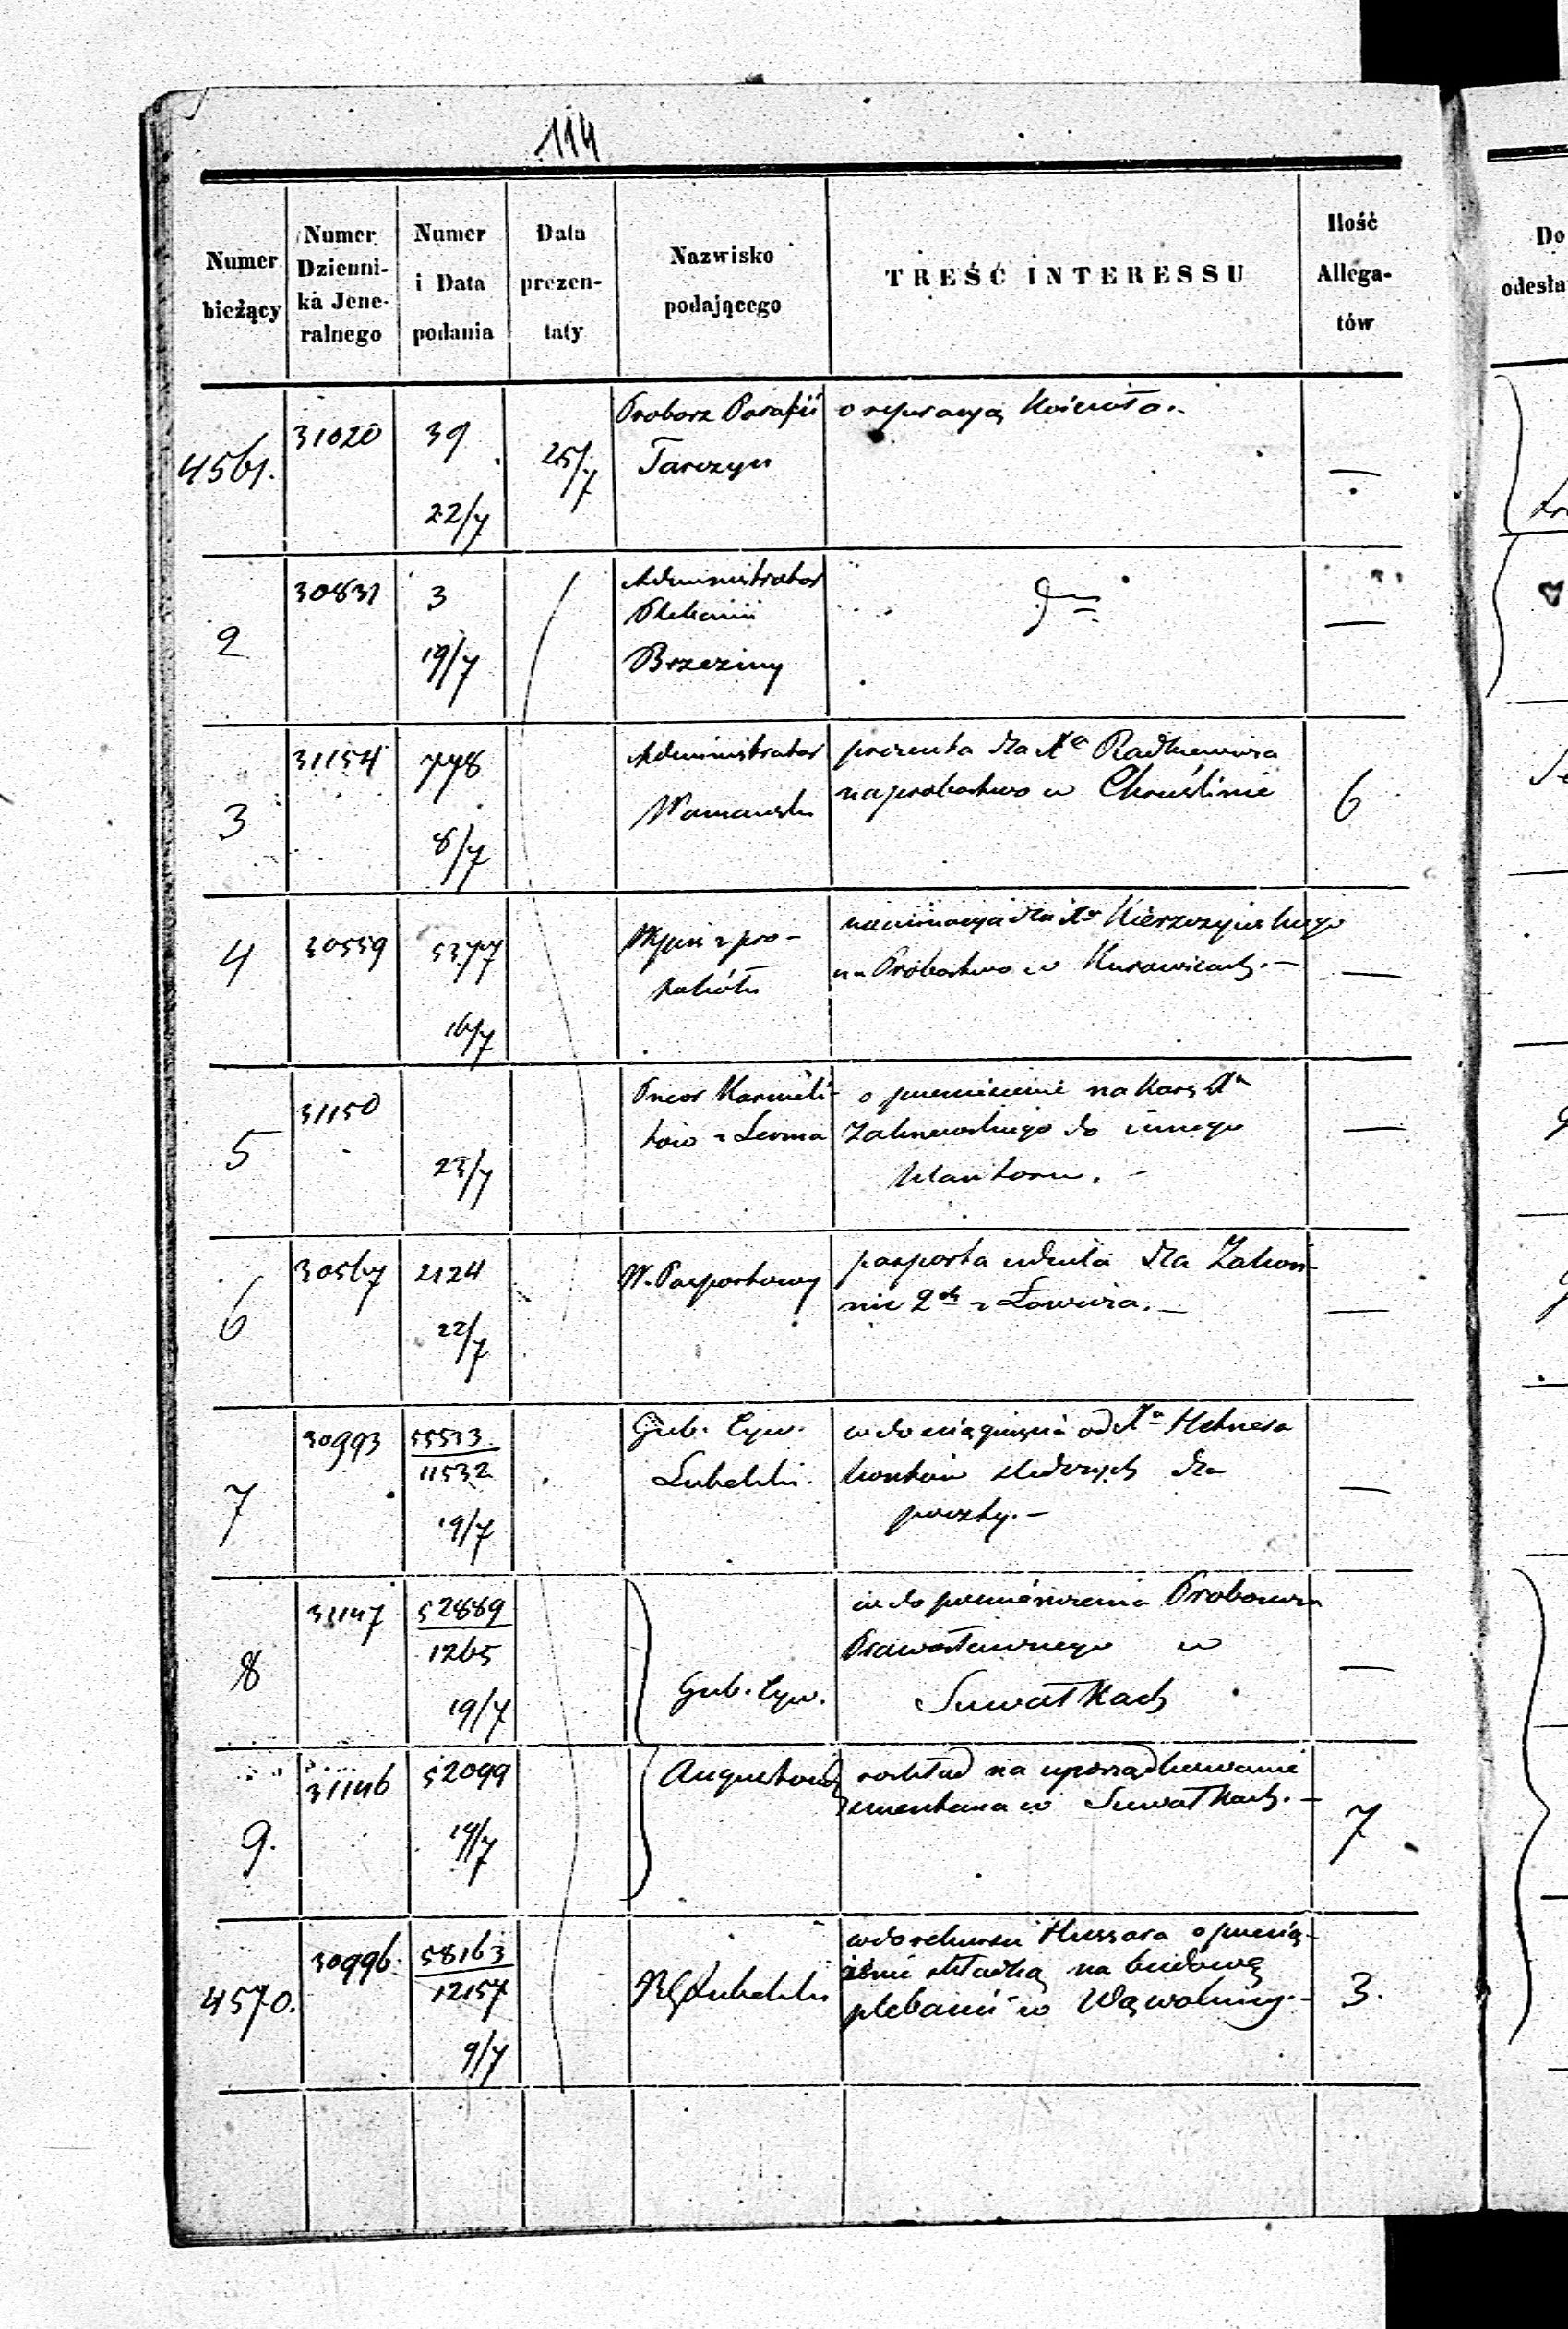 114
Numer bieżący
Numer Dzienni-ka Jene-ralnego
Numer i Data podania
Data prezen-taty
Nazwisko podającego
TREŚĆ INTERESSU
Ilość Allega-tów
Do
odesła
4561.
31020
39
22/7
25/7
Proboscz Parafii
Tarczyn
o reperacyą Kościoła.
—
2
30831
3
19/7
Administrator
Plebanii
Brzeziny
—
3
31154
778
8/7
Administrator
Warszawski
prezenta dla Xa Radkiewicza
na probostwo w Chruślinie
6
4
30559
5377
16/7
Wypis z pro-
tokółu
nominacya dla Xa Kierzczyńskiego
na Probostwo w Kurowicach. —
—
5
31150
23/7
Preor Karmeli-
tów z
o przeniesienie na karę Xa
Zaliwowskiego do innego
klasztoru. —
—
6
30567
2124
22/7
W. Pasportowy
pasporta udziela dla Zakon-
nic 2ch z Łowicza. —
—
7
30993
55533
11532
19/7
Gub. Cyw.
Lubelski.
wdo ściągnięcia od Xa
kosztów dla
poczty. —
—
8
31147
52889
1265
19/7
Gub. Cyw.
wdo pomieszczenia Proboszcza
Prawosławnego w
Suwałkach
—
9.
31146
52099
19/7
Augustows
rozkład na uporządkowanie
cmentarza w Suwałkach. —
7
4570.
30996.
58163
12157
9/7
RG Lubelski
wdo rekursu Hussara o przecią-
żenie składką na budowę
plebanii w Wąwolnicy. —
3.